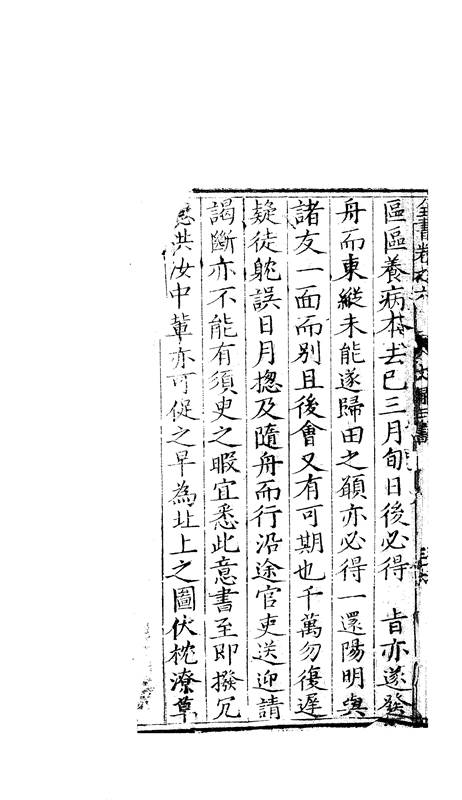 全書卷之六
區區養病本去已三月旬日後必得　旨亦遂發
舟而東縱未能遂歸田之願亦必得一還陽明與
諸友一面而別且後會又有可期也千萬勿復遲
疑徒躭誤日月揔及隨舟而行沿途官吏送迎請
謁斷亦不能有須臾之暇宜悉此意書至即撥冗
洪汝中輩亦可促之早為北上之圖伏枕潦草